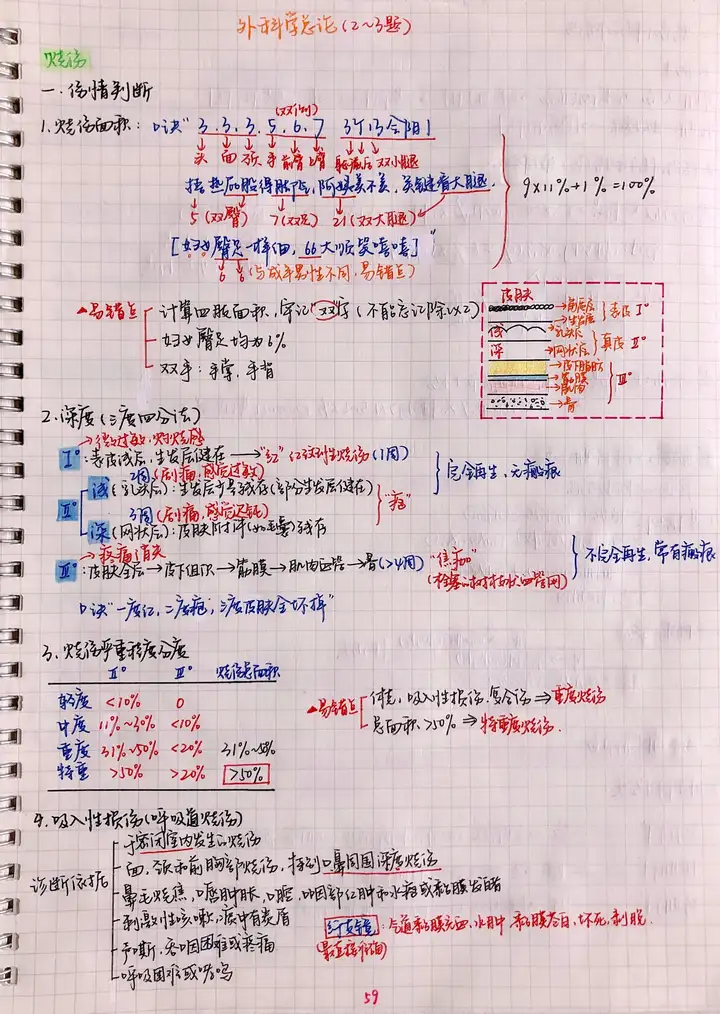 外科学总论(2~3题)
烧伤
一. 伤情判断
1. 烧伤面积: 口诀"3.3.3.5.6.7 3行13会阴1
(双侧)
头 面 颈 手 前臂 上臂 躯 双小腿
5(双臀) 7(双足) 21(双大腿)
9×11%+1%=100%
[妇女臀足一样佃, 66大顺笑嘻嘻]"
6 6 (与成年男性不同, 易错点)
▲易错点
计算四肢面积, 牢记"双"字(不能忘记除以2)
妇女臀足均为6%
双手: 手掌, 手背
皮肤
角质层
生发层
表皮 I°
浅 乳头层
深 网状层
真皮 II°
皮下脂肪
筋膜
肌肉
骨
III°
2. 深度(三度四分法)
微过敏, 灼烧感
I°: 表皮浅层, 生发层健在→"红" 红斑性烧伤(1周)
2周(剧痛, 感觉过敏)
II° 浅(乳头层): 生发层少量残存(部分生发层健在)
3周(剧痛, 感觉迟钝)
深(网状层): 皮肤附件(如毛囊)残存
"疱"
完全再生, 无瘢痕
疼痛消失
III°: 皮肤全层→皮下组织→筋膜→肌肉血管→骨(>4周) "焦痂"
(栓塞的树枝状血管网)
不完全再生, 常有瘢痕
口诀"一度红, 二度疱, 三度皮肤全坏掉"
3. 烧伤严重程度分度
II° III° 烧伤总面积
轻度 <10% 0
中度 11%~30% <10%
重度 31%~50% <20% 31%~50%
特重 >50% >20% >50%
▲易错点
休克, 吸入性损伤, 复合伤⇒重度烧伤
总面积>50%⇒特重度烧伤.
4. 吸入性损伤(呼吸道烧伤)
诊断依据
于密闭室内发生的烧伤
面, 颈和前胸部烧伤, 特别口鼻周围深度烧伤
鼻毛烧焦, 口唇肿胀, 口腔, 口咽部红肿有水疱或黏膜发白
刺激性咳嗽, 痰中有炭屑
声嘶, 吞咽困难或疼痛
呼吸困难或哮鸣
纤支镜: 气道黏膜充血, 水肿 黏膜苍白, 坏死, 剥脱.
59